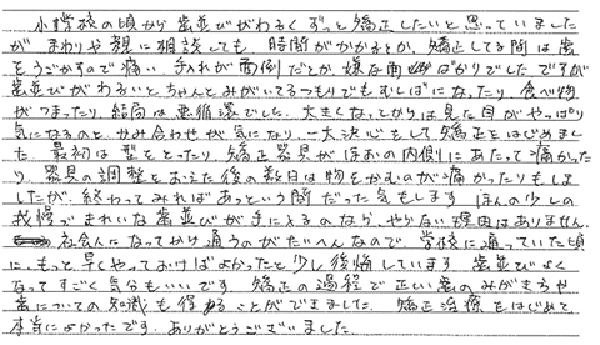 小学校の頃から歯並びがわるくずっと矯正したいと思っていました
が まわりや親に相談しても、時間がかかるとか、矯正してる間は歯
をうごかすので痛い、手入れが面倒だとか、嫌な面ばかりでした ですが
歯並びがわるいと、ちゃんとみがいてるつもりでもむしばになったり、食べ物
がつまったり、結局は悪循環でした。大きくなってからは見た目がやっぱり
気になるのと、かみ合わせが気になり、一大決心をして矯正をはじめまし
た 最初は型をとったり、矯正器具がほおの内側にあたって痛かった
り、器具の調整をおえた後の数日は物をかむのが痛かったりもしま
したが、終わってみればあっという間だった気もします ほんの少しの
我慢できれいな歯並びが手に入るのなら、やらない理由はありません
社会人になってから通うのがたいへんなので、学校に通っていた頃
に、もっと早くやっておけばよかったと少し後悔しています 歯並びよく
なってすごく気分もいいです 矯正の過程で正しい歯のみがき方や
歯についての知識も得ることができました。矯正治療をはじめて
本当によかったです。ありがとうございました。